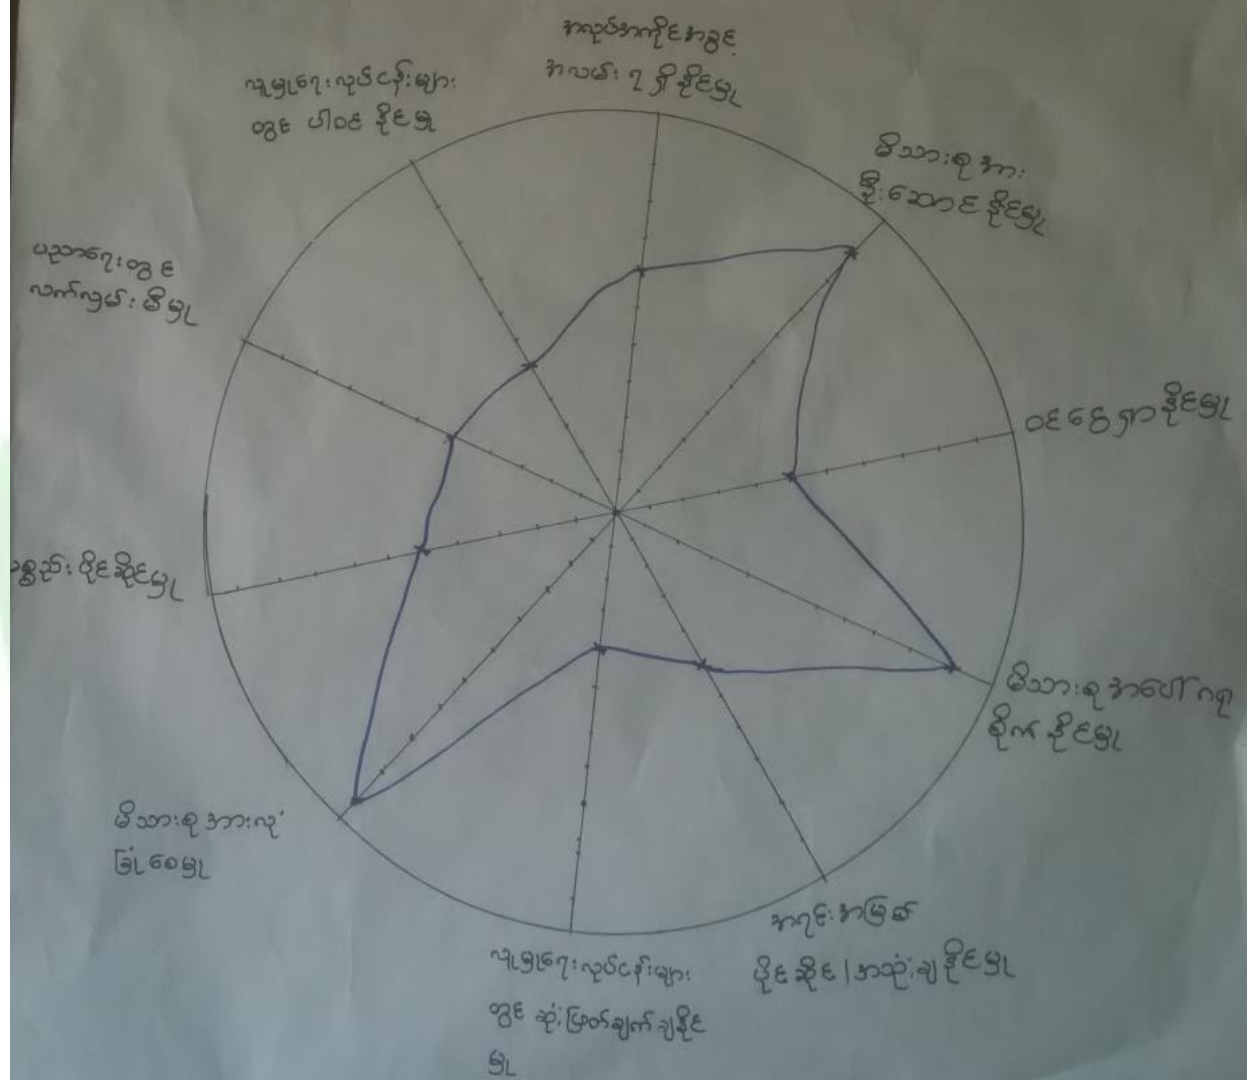 အလုပ်အကိုင်အခွင့်
အလမ်း ရရှိနိုင်မှု
မိသားစု အား
ဦးဆောင်နိုင်မှု
ဝင်ငွေရှာနိုင်မှု
မိသားစု အပေါ် ဂရု
စိုက်နိုင်မှု
အရင်းအမြစ်
ပိုင်ဆိုင်/အသုံးချနိုင်မှု
လူမှုရေးလုပ်ငန်းများ
တွင် ဆုံးဖြတ်ချက်ချနိုင်
မှု
မိသားစု အားလုံ
ခြုံစေမှု
ပစ္စည်းပိုင်ဆိုင်မှု
ပညာရေးတွင်
လက်လှမ်းမီမှု
လူမှုရေးလုပ်ငန်းများ
တွင် ပါဝင်နိုင်မှု